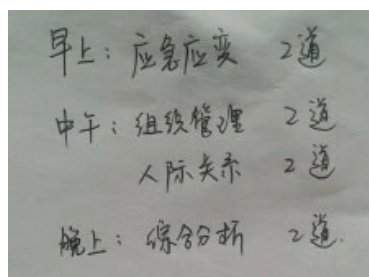 早上：应急应变 2道
中午：组织管理 2道
人际关系 2道
晚上：综合分析 2道.